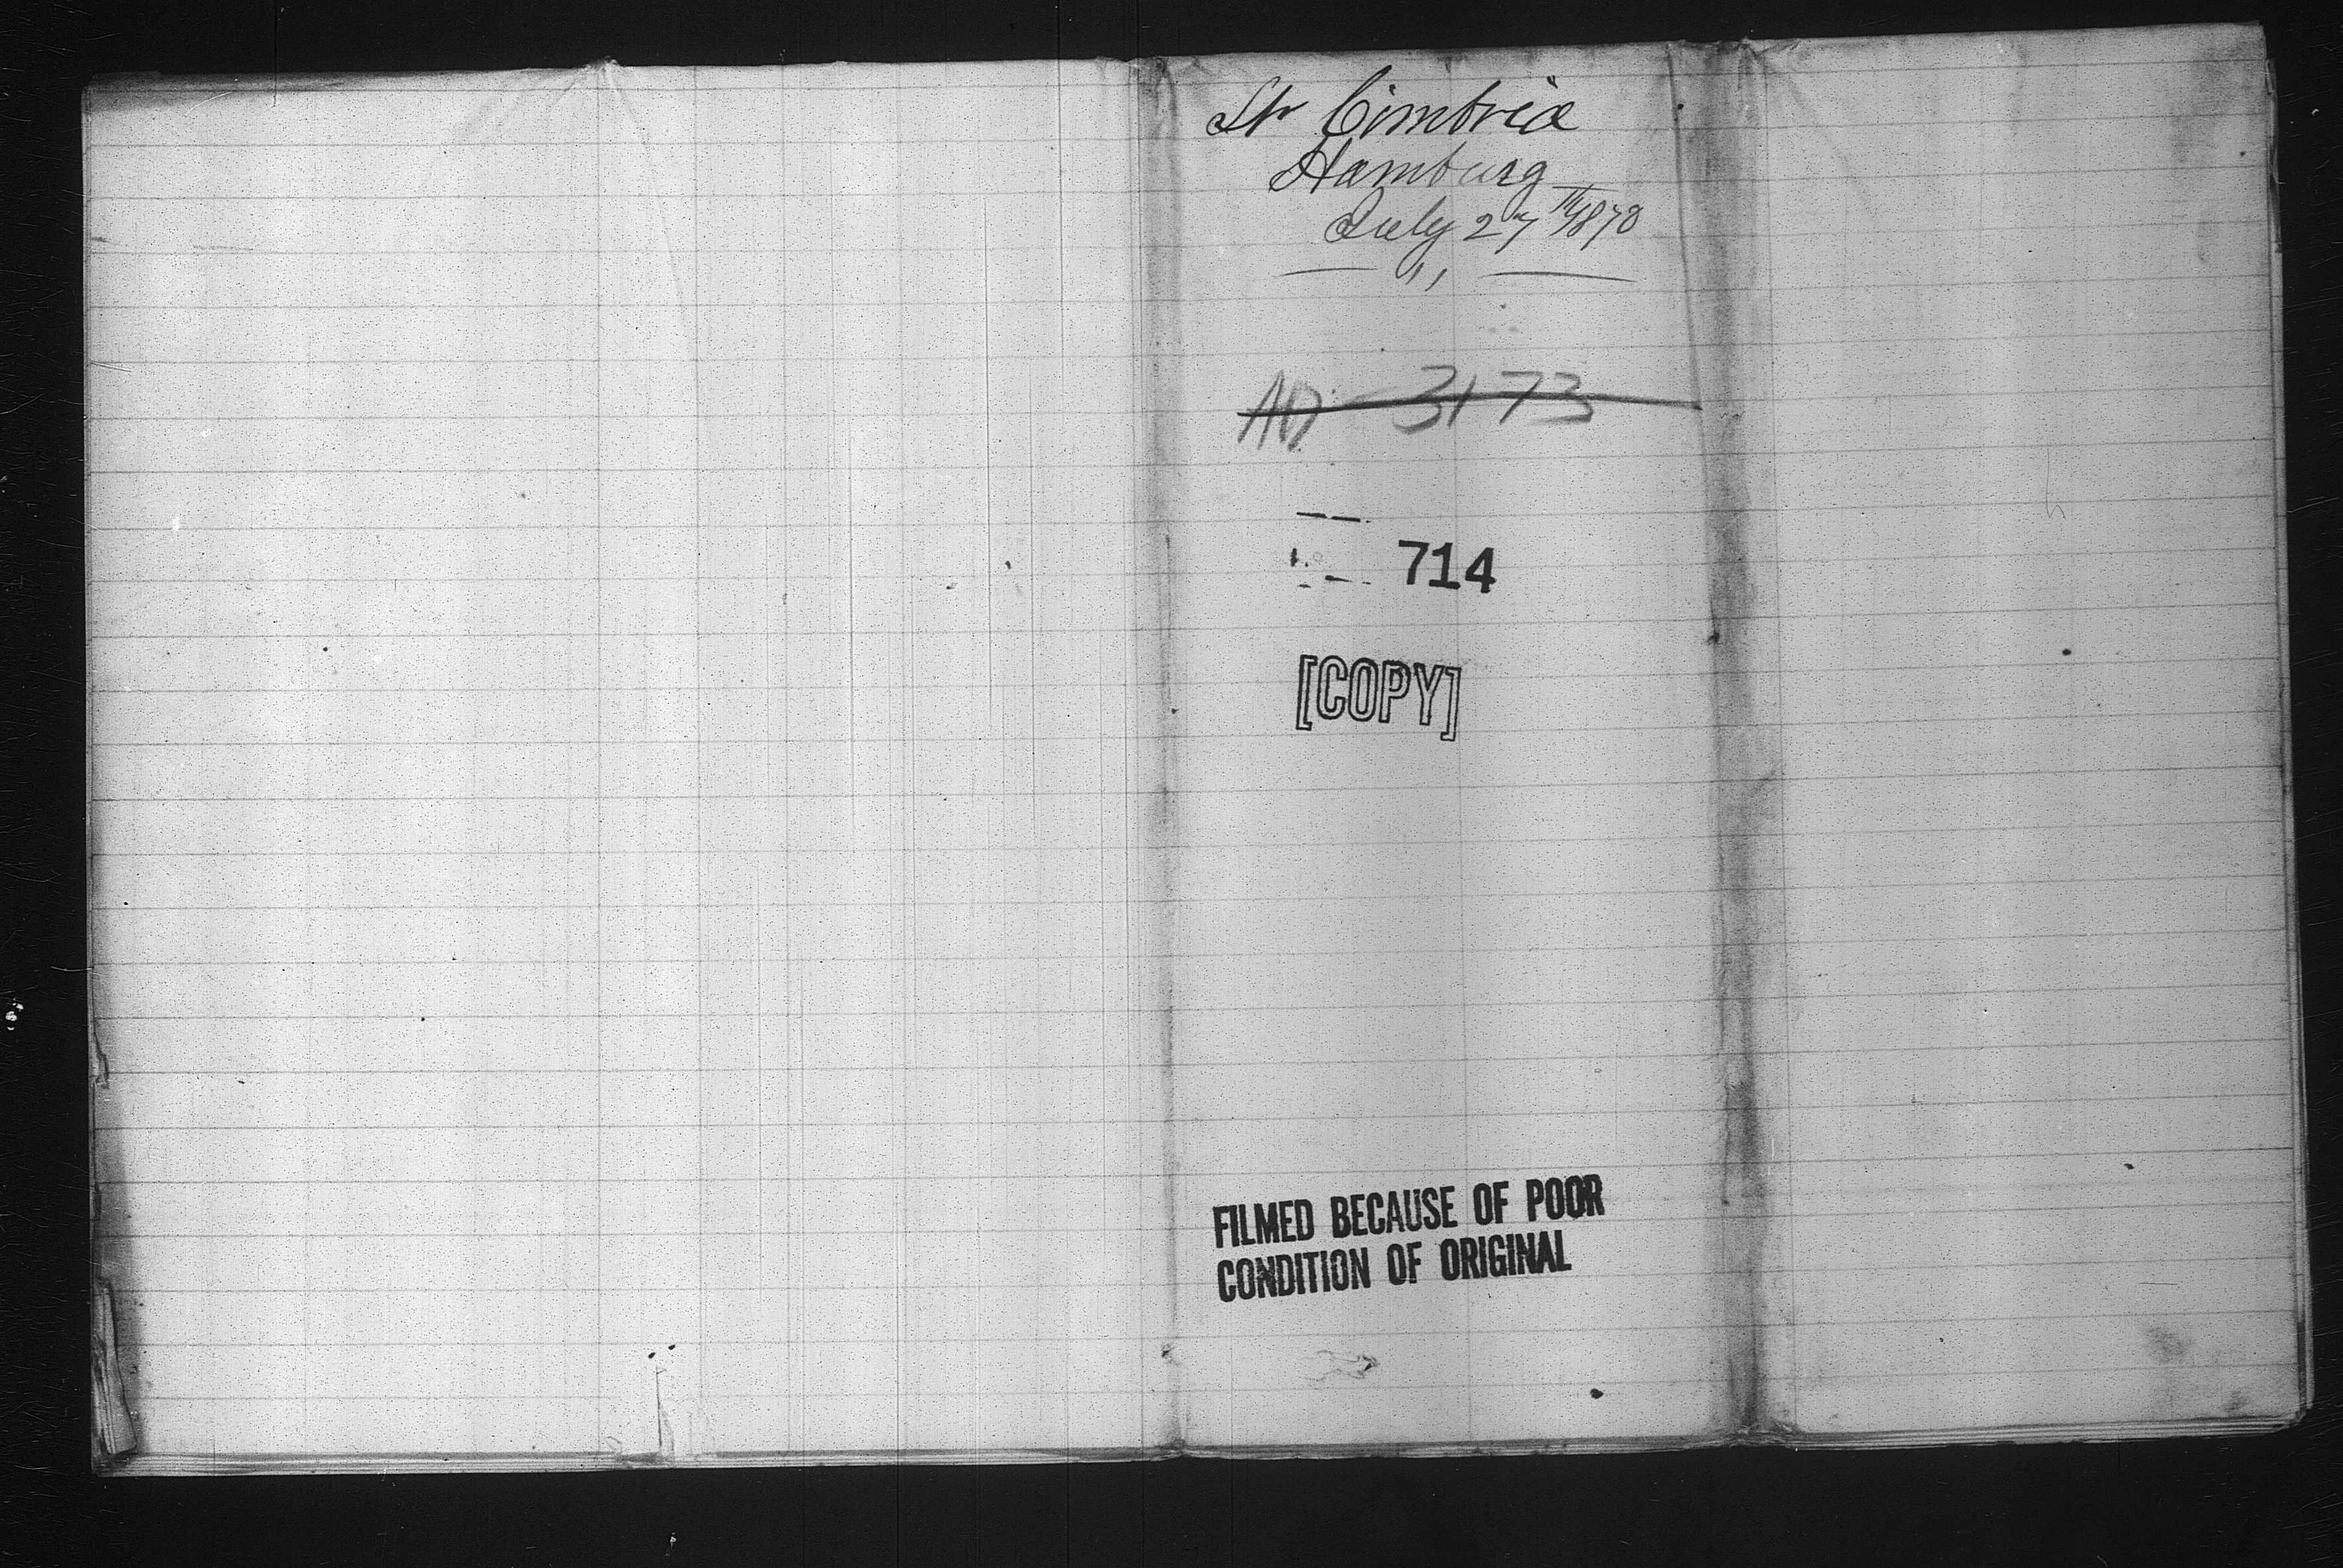 Str Cimbria
Hamburg
July 27th 1878
3173
714
[COPY]
FILMED BECAUSE OF POOR
CONDITION OF ORIGINAL